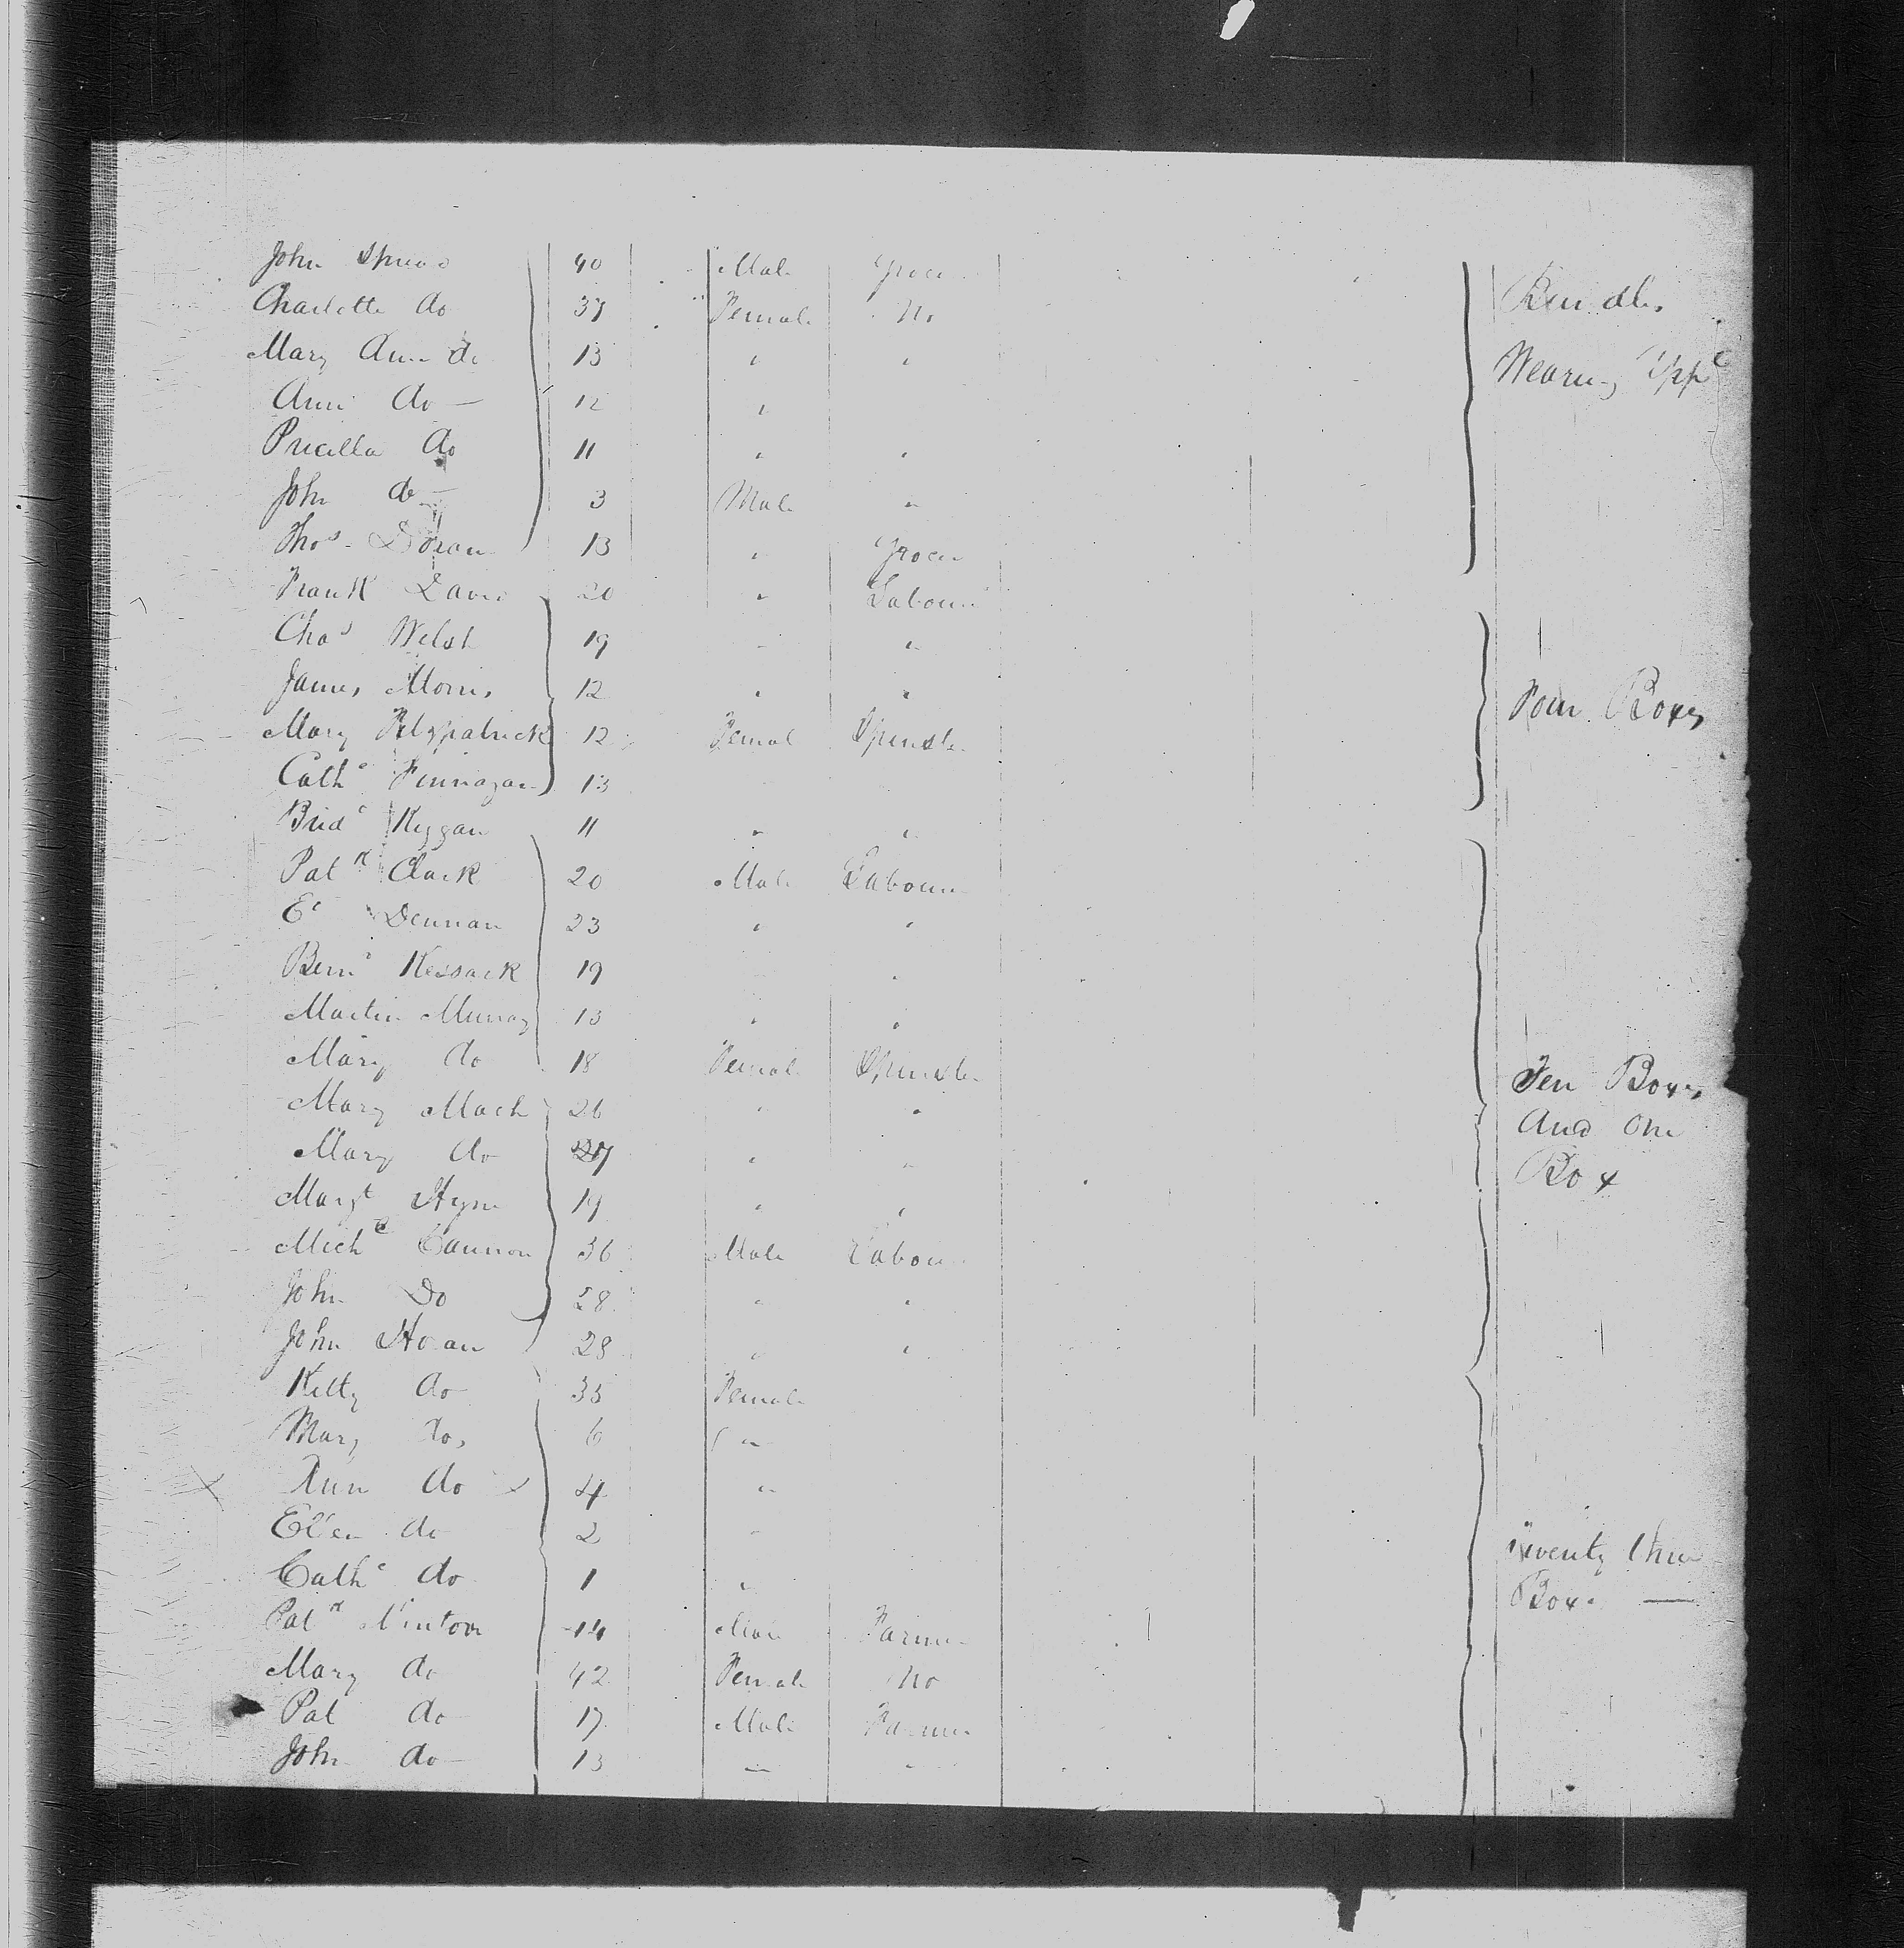 John 40 Male Grocer
Charlotte do 37 Female No
Mary Ann do 13 " "
Ann do — 12 "
Pricilla do 11 " "
John do — 3 Male "
Thos. Doran 13 " Grocer
Frank 20 " Labourer
Chas Welsh 19 " "
James Morris 12 " "
Mary Fitzpatrick 12 Female Spinster
Cathe Finnagan 13
Bridt 11 " "
Patk Clark 20 Male Labourer
Dennan 23 " "
Kessack 19 "
Martin Murray 13 " "
Mary do 18 Female Spinster
Mary Mack 26 " "
Mary do 27 " "
Margt 19 " "
Michl Cannon 36 Male Labour
John Do 28 " "
John 28 " "
Kitty do 35 Female
Mary do, 6 "
Ann do 4 "
Ellen do 2 "
Cathe do 1 "
Patk Farmer
Mary do 42 Female No
Pat do 17 Male Farmer
John do 13 " "
Bundles
Wearing
Four Boxes
Ten Boxes
And One
Box
Twenty three
Boxes —